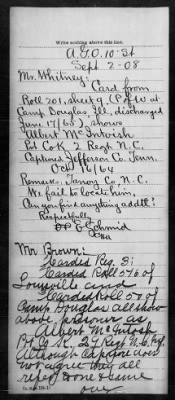 Write nothing above this line.
A.G.O. 10-St
Sept 2-08
Mr. Whitney:
Card from
Roll 201, sheet 9 (P of W at
Camp Douglas, Ill, discharged
June 17/65) shows
Albert McIntosh
Pvt Co K, 2 Regt N.C.
Captured Jefferson Co. Tenn.
Oct 16/64
Remarks, Co N.C.
We fail to locate him.
Can you find anything addl?
Respectfully
Schmid
Mr Brown:
Carded Reg 3;
Carded Roll 576 of
Louisville and
Carded Roll 50 of
Camp Douglas all show
above prisoner as
Albert McIntosh
Pvt Co K, 29 Regt N.C. Inf.
Although Capture does
not agree they all
refer to one & same
over